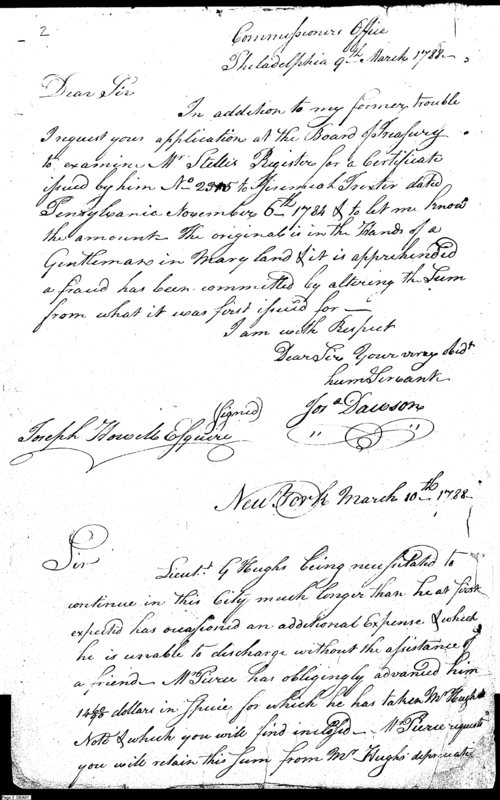 2
Commissioners Office
Philadelphia 9th March 1788
Dear Sir
In addition to my former trouble
I request your application at the Board of Treasury
to examine Mr Stelle's Register for a Certificate
issued by him No to Jeremiah Trexter dated
Pensylvania November 6th 1784 & to let me know
the amount The original is in the Hands of a
Gentleman in Maryland & it is apprehended
a fraud has been committed by altering the Sum
from what it was first issued for
I am with Respect
Dear Sir Your very Obdt
hume Servant
Jos a Dawson
(signed)
Joseph Howell Esquire
New York March 10th 1788
Sir
Lieut. G Hughs being necessitated to
continue in this City much longer than he at first
expected has occasioned an additional Expense & which
he is unable to discharge without the assistance of
a friend Mr Pierce has obligingly advanced him
dollars in Specie for which he has taken Mr Hughs
Note & which you will find inclosed Mr Pierce requests
you will retain this Sum from Mr Hughs depreciate